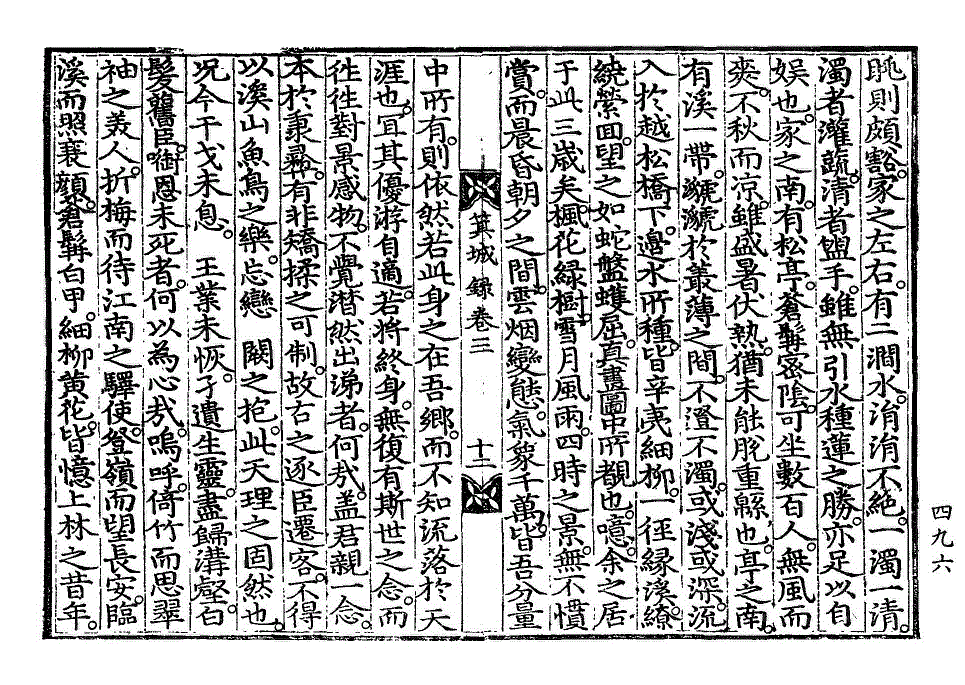 眺則頗豁。家之左右。有二澗水。涓涓不絶。一濁一清
濁者灌蔬。清者盥手。雖無引水種蓮之勝。亦足以自
娱也。家之南。有松亭。蒼髯密陰。可坐數百人。無風而
爽。不秋而凉。雖盛暑伏熱。猶未能脫重緜也。亭之南。
有溪一帶。㶁㶁於叢薄之間。不澄不濁。或淺或深。流
入於越松橋下。邊水所種。皆辛夷細柳。一徑緣溪繚
繞縈回。望之如蛇盤蠖屈。眞畫圖中所覩也。噫。余之居
于此三歲矣。楓花綠樹。雪月風雨。四時之景。無不慣
賞。而晨昏朝夕之間。雲烟變態。氣象千萬。皆吾分量
箕城錄卷三
十二
中所有。則依然若此身之在吾鄉。而不知流落於天
涯也。宜其優游自適。若將終身。無復有斯世之念。而
往往對景感物。不覺潸然出涕者。何哉。盖君親一念。
本於秉彝。有非矯揉之可制。故古之逐臣遷客。不得
以溪山魚鳥之樂。忘戀 闕之抱。此天理之固然也。
况今干戈未息。 王業未恢。孑遺生靈。盡歸溝壑。白
髮舊臣。啣恩未死者。何以為心哉。嗚呼。倚竹而思翠
袖之美人。折梅而待江南之驛使。登嶺而望長安。臨
溪而照衰顔。蒼髯白甲。細柳黄花。皆憶上林之昔年。
四九六